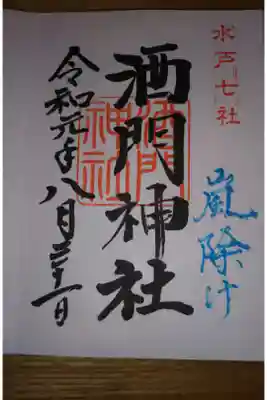 水戸七社
嵐除け
酒門神社
酒門神社
令和元年八月三十一日